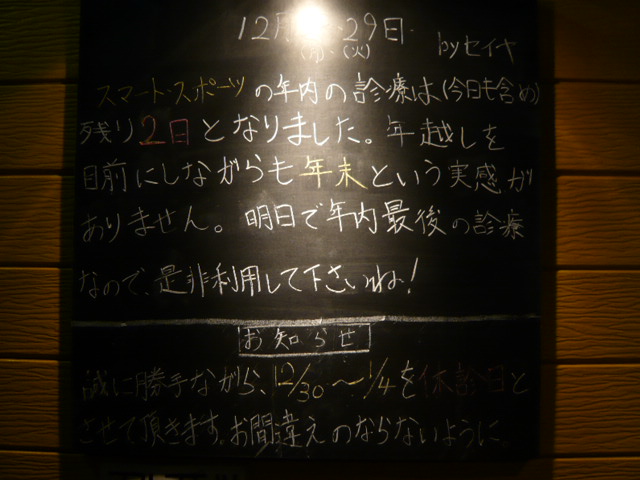 12月 29日 byセイヤ
(月)・(火)
スマート・スポーツの年内の診療は(今日も含め)
残り2日となりました。年越しを
目前にしながらも年末という実感が
ありません。明日で年内最後の診療
なので、是非利用して下さいね!
お知らせ
誠に勝手ながら、12/30～1/4を休診日と
させて頂きます。お間違えのならないように。